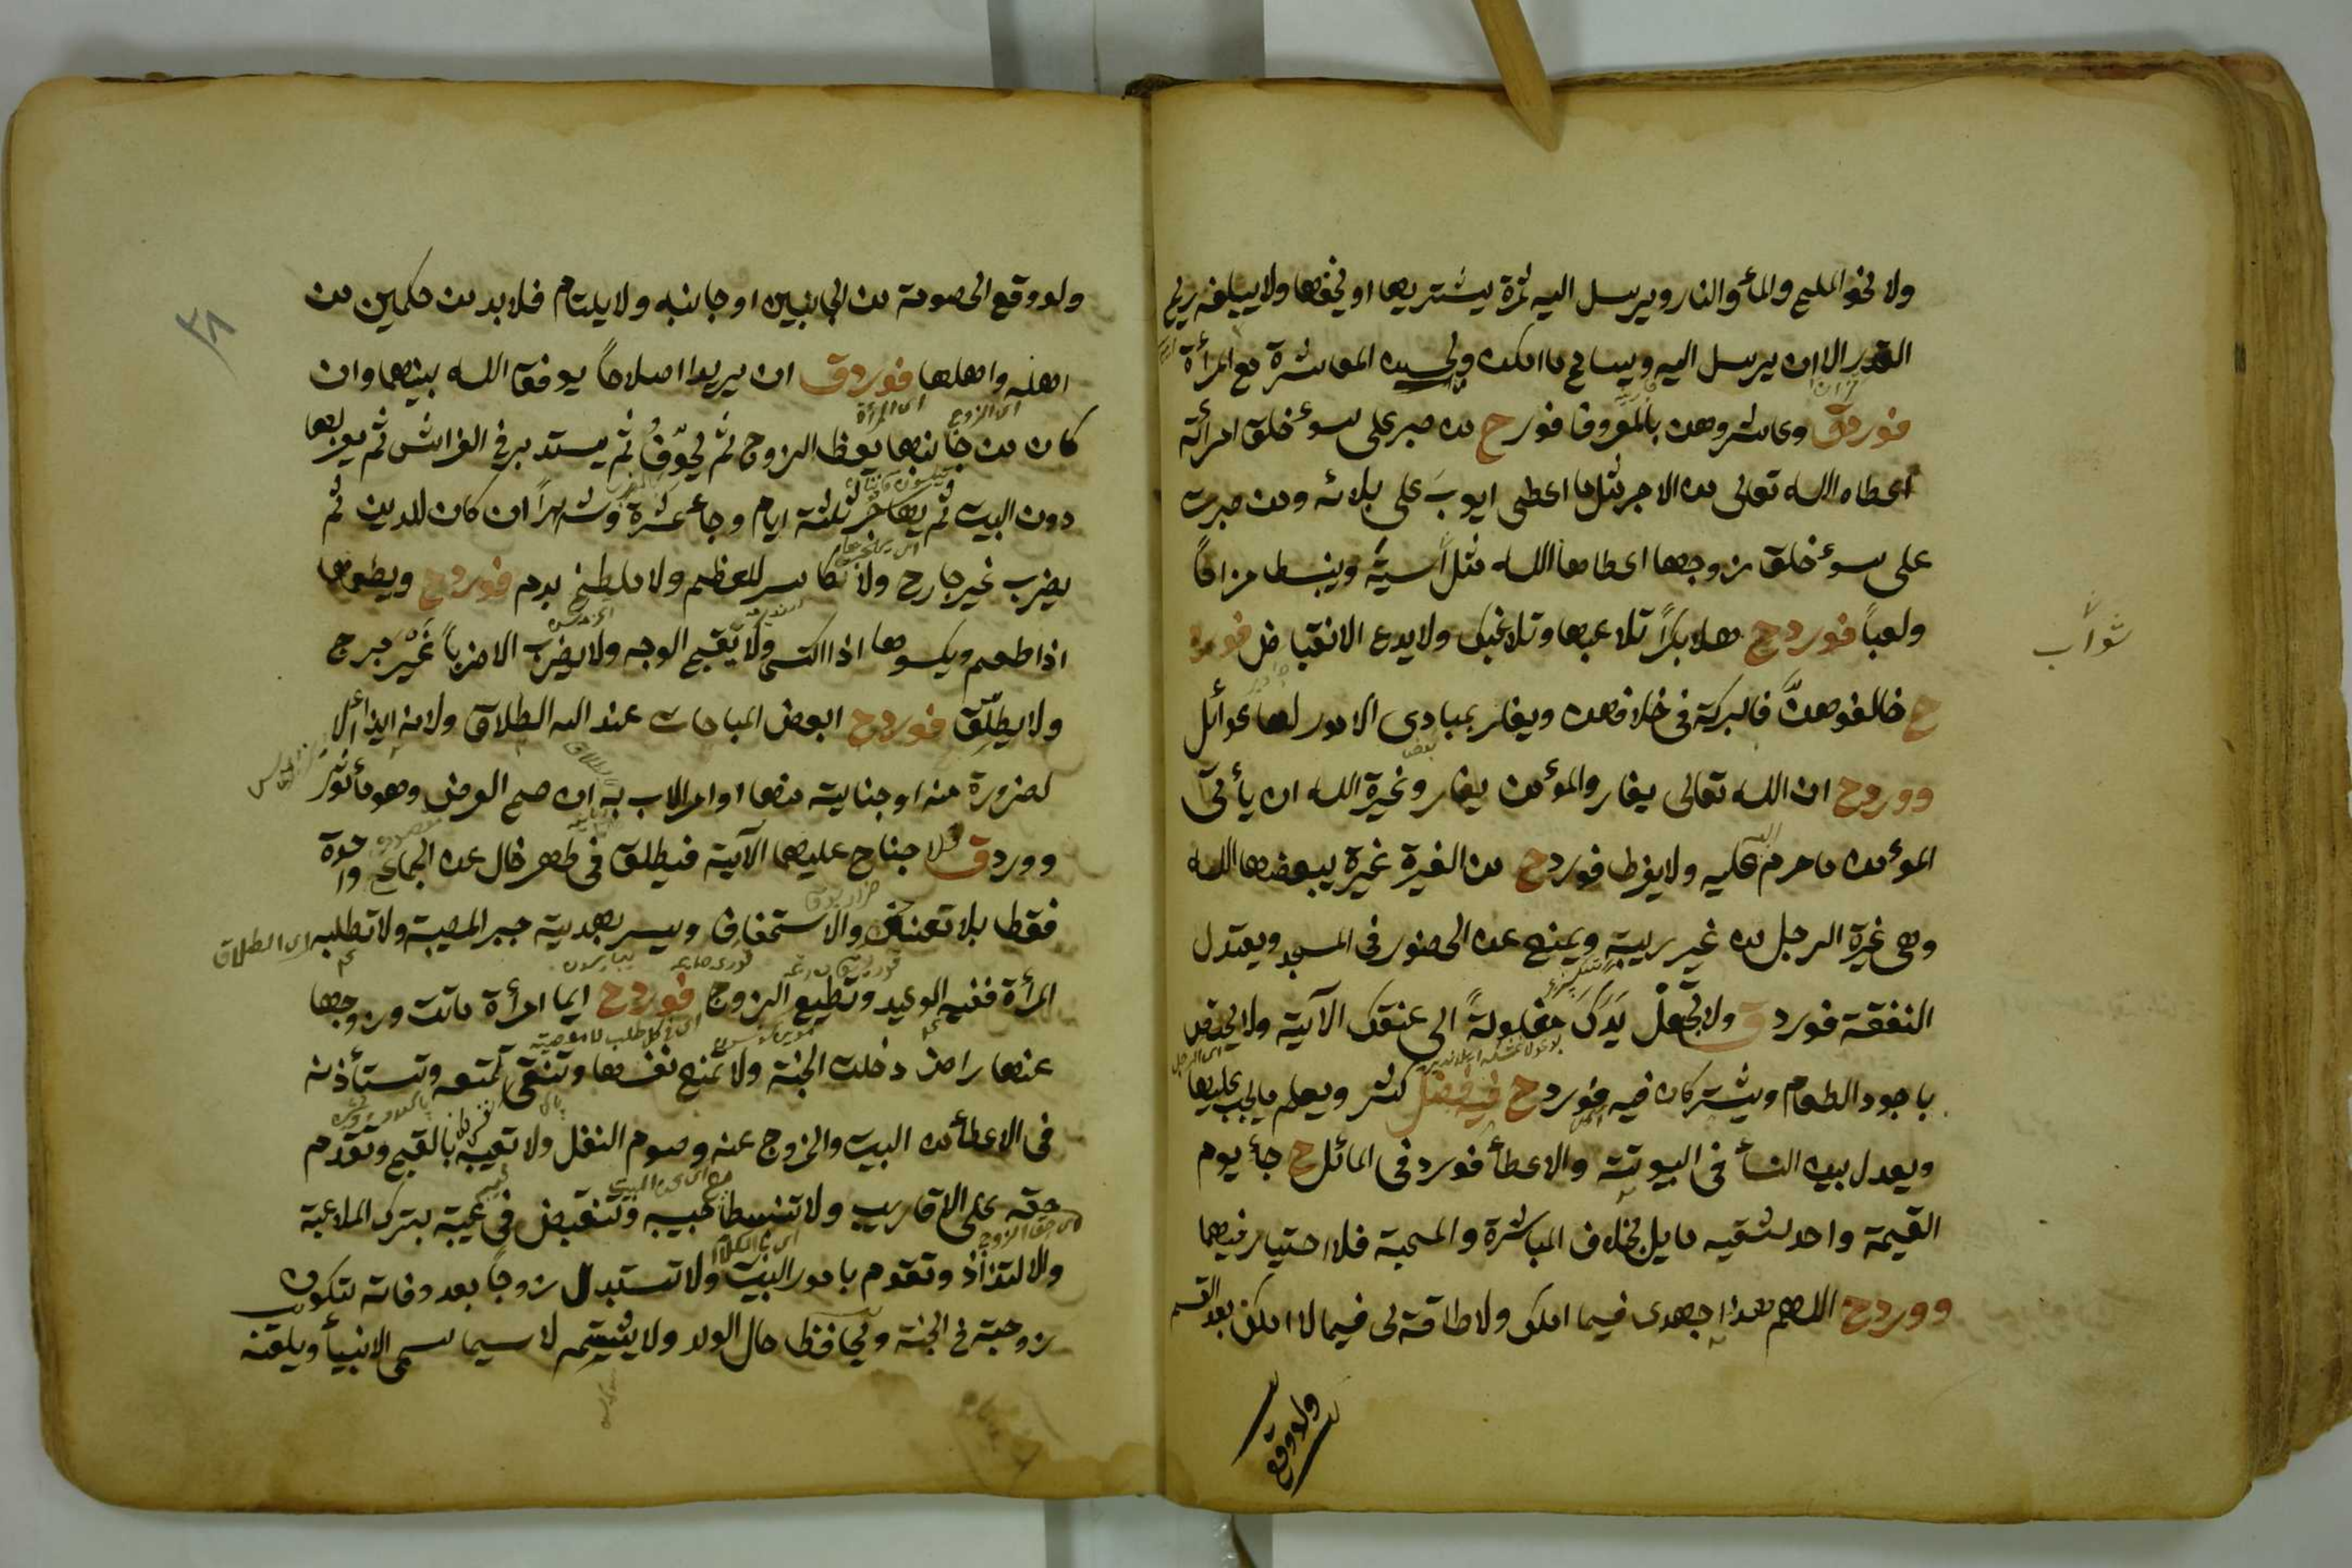 ولا نحو الملح والمأ والنار ويرسل اليه ثمرة يشتريها او يخفها ولا يبلغه ريح
القدر الا ان يرسل اليه ويسامح ما امكن ويحسن المعاشرة مع المرأة
فورد ق وعاشروهن بالمعروف فورد ح من صبر على سوء خلق امرأته
اعطاه الله تعالى من الاجر مثل ما اعطى ايوب على بلائه ومن صبرت
على سوء خلق زوجها اعطاها الله مثل آسية وينبسط مزاحاً
ولعباً فورد ح هلا بكراً تلاعبها وتلاعبك ولا يدع الانقباض فورد
ح خالفوهنّ فالبركة فى خلافهن ويغار بمبادى الامور لها غوائل
وورد ح ان الله تعالى يغار والمؤمن يغار وغيرة الله ان يأتى
المؤمن ما حرم الله عليه ولا يفرط فورد ح من الغيرة غيرة يبغضها الله
وهى غيرة الرجل من غير ريبة ويمنع عن الحضور فى المسجد ويعتدل
النفقة فورد ق ولا تجعل يدك مغلولةً الى عنقك الآية ولا يختص
باجود الطعام ويشتركان فيه فورد ح فيه فضل كثير ويعلم ما يجب عليها
ويعدل بين النسأ فى البيوتتة والاعطأ فورد فى المائل ح جأ يوم
القيمة واحد شقيه مايل بخلاف المباشرة والمحبة فلا اختيار فيهما
وورد ح اللهم هذا جهدى فيما املك ولا طاقة لى فيما لا املك بعد القسم
ولو وقع
ثواب
٣٨
ولو وقع الخصومة من الجانبين او جانبه ولا يلتام فلا بد من حكمين من
اهله واهلها فورد ق ان يريدا اصلاحاً يوفق الله بينهما وان
كان من جانبها يعظ الزوج ثم يخوّف ثم يستدبر فى الفراش ثم يعزلها
دون البيت ثم يهاجر ثلثة ايام وجأ عشرة وشهراً ان كان للدين ثم
يضرب غير جارح ولا كاسر للعظم ولا ملطخ بدم فورد ح ويطعمها
اذا طعم ويكسوها اذا اكتسى ولا يقبح الوجه ولا يضرب الا ضرباً غير مبرح
ولا يطلّق فورد ح ابغض المباحات عند الله الطلاق ولانه ايذأ الا
لضرورة منه او جناية منها او امر الاب به ان صح الغرض وهو مأثور
وورد ق فلا جناح عليهما الآية فيطلق فى طهر خال عن الجماع واحدة
فقط بلا تعنيف والاستخفاف ويسر بهدية جبر المصيبة ولا تطلبه اى الطلاق
المرأة ففيه الوعيد وتطيع الزوج فورد ح ايما امرأة ماتت وزوجها
عنها راض دخلت الجنة ولا تمنع نفسها وتنقى لتمتعه وتستأذنه
فى الاعطأ من البيت والخروج عنه وصوم النفل ولا تعيبه بالقبح وتقدم
حقه على الاقارب ولا تنبسط حبيبه وتنقبض فى غيبته بترك الملاعبة
والالتذاذ وتقوم بامور البيت ولا تستبدل زوجاً بعد وفاته لتكون
زوجته فى الجنة ويحافظ حال الولد ولا يشتمه لا سيما سمى الانبيأ ويلقنه